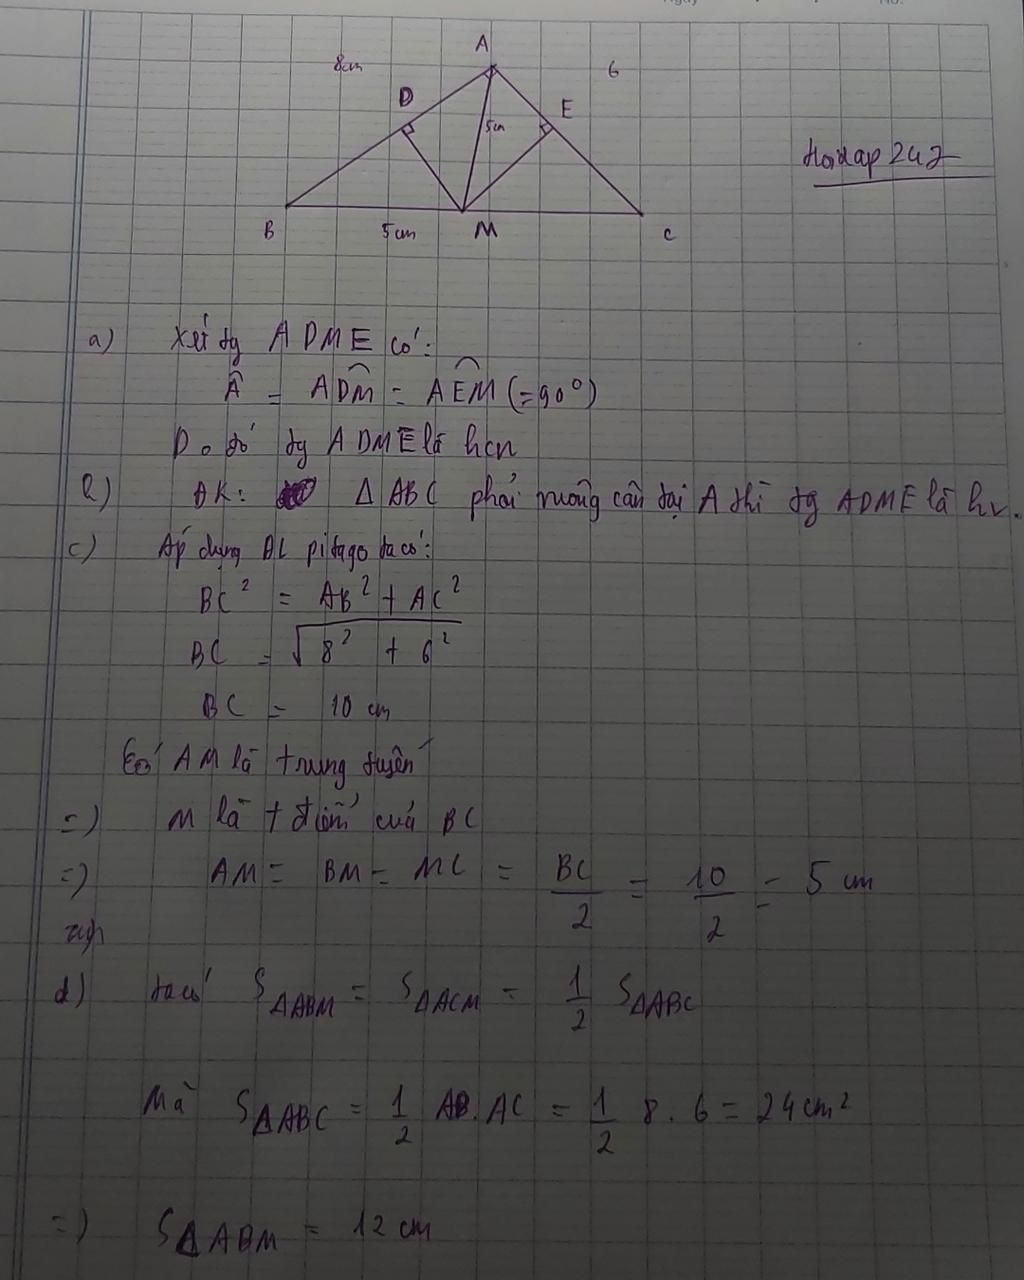 Ngày
No.
A
8cm
6
D
E
5cm
Hoidap247
B
5cm
M
C
a) Xét tg ADME có:
Â = ADM̂ = AÊM (=90°)
Do đó tg ADME là hcn
b) ĐK: Δ ABC phải vuông cân tại A thì tg ADME là hv.
c) Áp dụng ĐL pitago ta có:
BC² = AB² + AC²
BC = √8² + 6²
BC = 10 cm
Có AM là trung tuyến
=) M là t điểm của BC
=) AM = BM = MC = BC/2 = 10/2 = 5 cm
d) ta có S ΔABM = S ΔACM = 1/2 S ΔABC
Mà S ΔABC = 1/2 AB.AC = 1/2 8.6 = 24cm²
=) S ΔABM = 12 cm